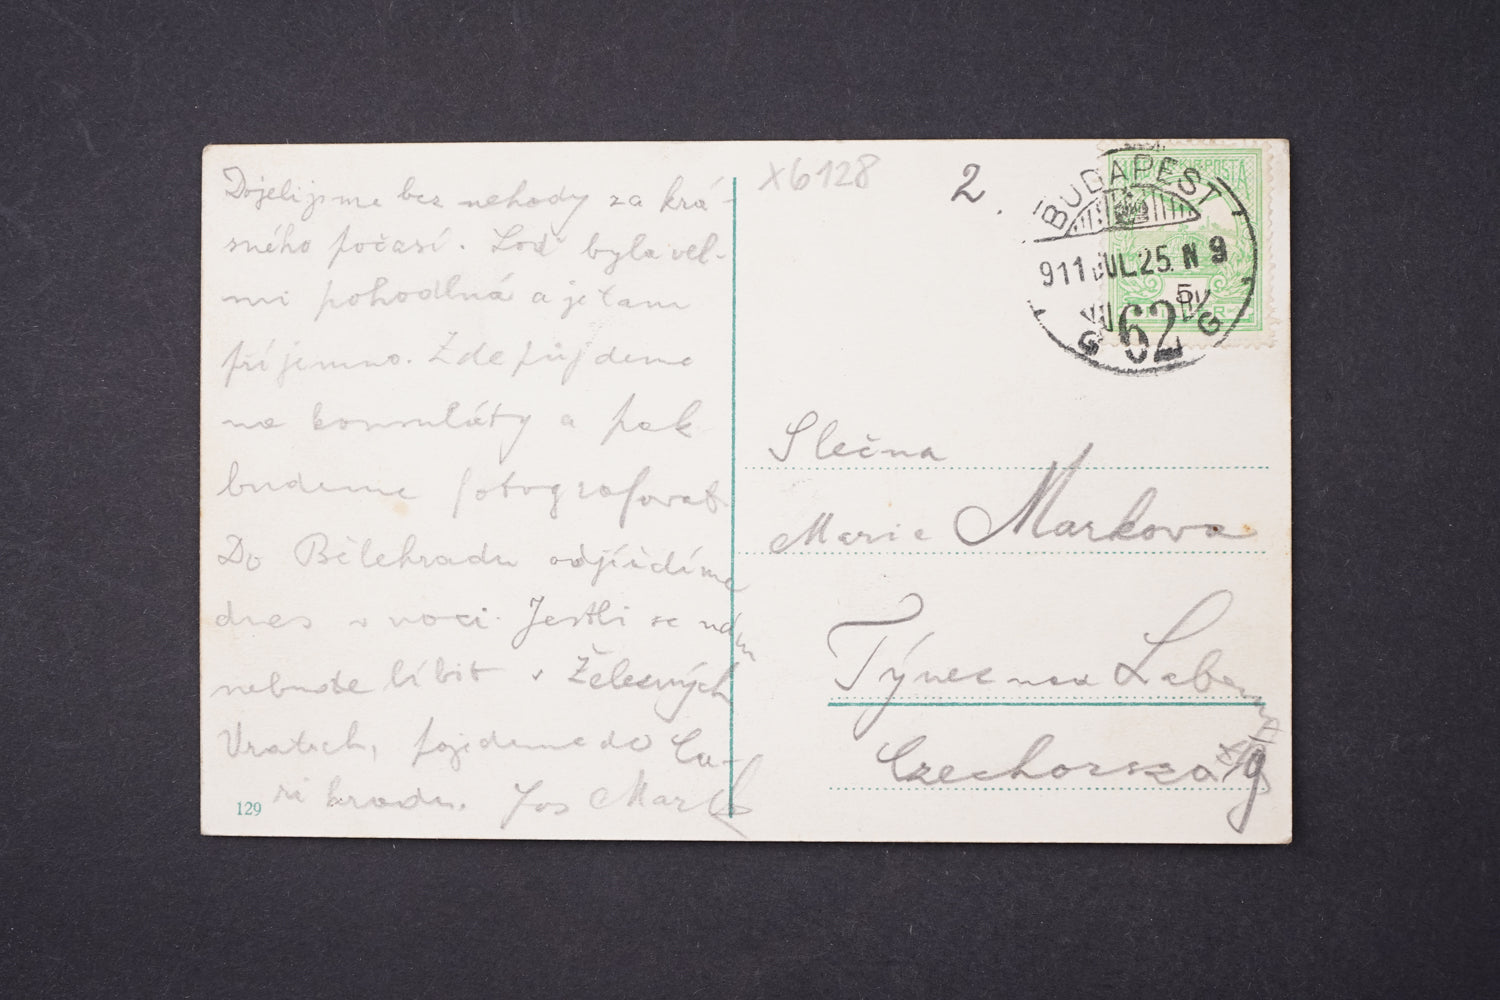 Dojeli jsme bez nehody za krá-
sného počasí. Loď byla vel-
mi pohodlná a je tam
příjemno. Zde půjdeme
na konsuláty a pak
budeme fotografovat
Do Bělehradu odjíždíme
dnes v noci. Jestli se nám
nebude líbit v Železných
Vratech, pojedeme do Ca-
ri hradu. Jos Mark
129
X6128
2.
BUDAPEST
911 JUL.25. N 9
62
G G
MAGYAR KIR. POSTA
5
Slečna
Marie Markova
Týnec nad Labem
Czechország